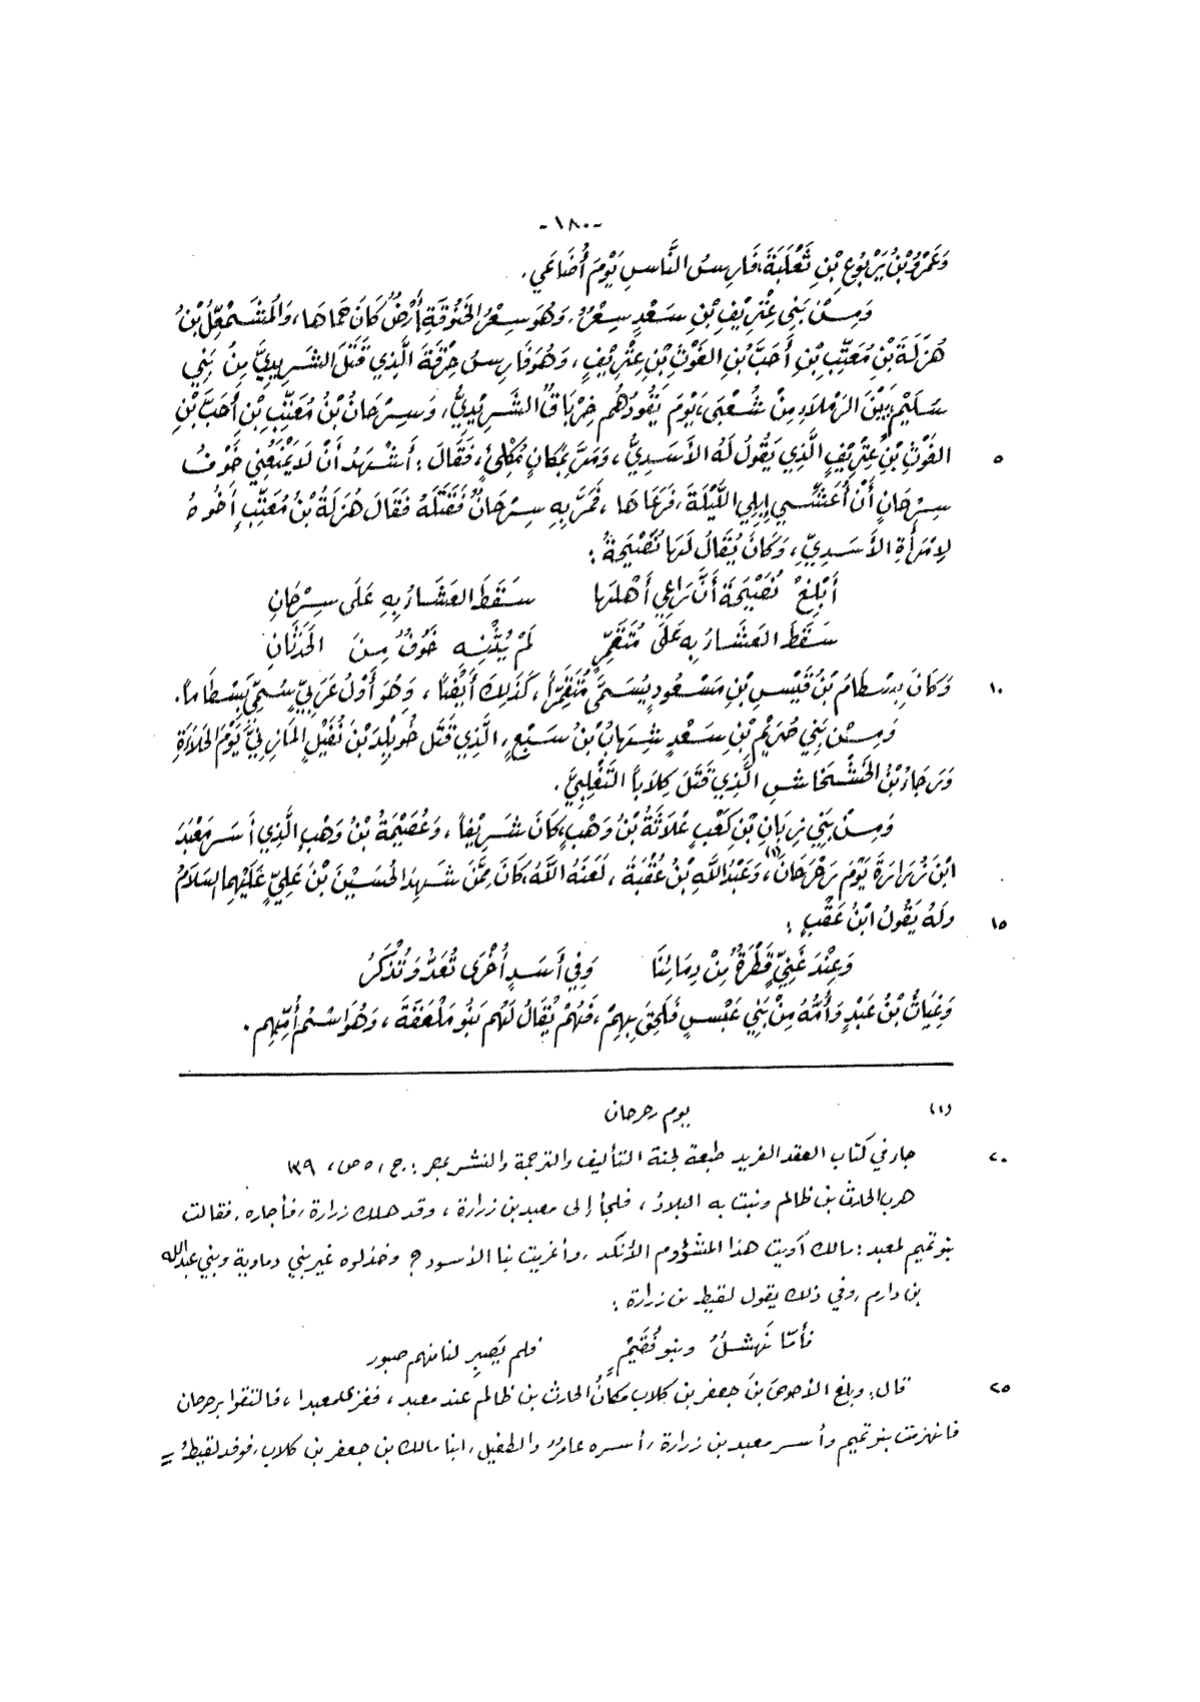 -١٨٠-
وَعَمْرُو بْنُ يَرْبُوعِ بْنِ ثَعْلَبَةَ، فَارِسُ النَّاسِ يَوْمَ أُضَاعَي.
وَمِنْ بَنِي عِتْرِيفِ بْنِ سَعْدٍ سِعْرٌ، وَهُوَ سِعْرُ الخَنُوقَةِ أَرْضٌ كَانَ حَمَاهَا، وَالمُشْمَعِلُّ بْنُ
هُزَلَةَ بْنِ مُعَتِّبِ بْنِ أَحَبَّ بْنِ الغَوْثِ بْنِ عِتْرِيفٍ، وَهُوَ فَارِسُ حِزْقَةَ الَّذِي قَتَلَ الشَّرِيدِيَّ مِنْ بَنِي
سُلَيْمٍ بَيْنَ الرَّمْلَاءِ مِنْ شُعْبَى، يَوْمَ يَقُودُهُم خِرْبَاقٌ الشَّرِيدِيُّ، وَسِرْحَانُ بْنُ مُعَتِّبِ بْنِ أَحَبَّ بْنِ
٥ الغَوْثِ بْنِ عِتْرِيفٍ الَّذِي يَقُولُ لَهُ الأَسَدِيُّ، وَمَرَّ بِمَكَانٍ مُكْلِئٍ، فَقَالَ: أَشْهَدُ أَنْ لَا يَمْنَعُنِي خَوْفُ
سِرْحَانٍ أَنْ أُعَشِّي إِبِلِي اللَّيْلَةَ، فَرَعَاهَا، فَمَرَّ بِهِ سِرْحَانٌ فَقَتَلَهُ فَقَالَ هُزَلَةُ بْنُ مُعَتِّبٍ أَخُوهُ
لِامْرَأَةِ الأَسَدِيِّ، وَكَانَ يُقَالُ لَهَا نُصَيْحَةُ:
أَبْلِغْ نُصَيْحَةَ أَنَّ رَاعِي أَهْلِهَا سَقَطَ العَشَاءُ بِهِ عَلَى سِرْحَانِ
سَقَطَ العَشَاءُ بِهِ عَلَى مُتَقَمِّرٍ لَمْ يُثْنِهِ خَوْفٌ مِنَ الحَدَثَانِ
١٠ وَكَانَ بِسْطَامُ بْنُ قَيْسِ بْنِ مَسْعُودٍ يُسَمَّى مُتَقَمِّراً، كَذَلِكَ أَيْضاً، وَهُوَ أَوَّلُ عَرَبِيٍّ سُمِّيَ بِسْطَاماً.
وَمِنْ بَنِي صُرَيْمِ بْنِ سَعْدٍ شِهَابُ بْنُ سَبُعٍ، الَّذِي قَتَلَ خُوَيْلِدَ بْنَ نُفَيْلٍ المَازِنِيَّ يَوْمَ الحَلَاءَةِ
وَرَجَاءُ بْنُ الخَشْخَاشِ الَّذِي قَتَلَ كِلَاباً التَّغْلِبِيَّ.
وَمِنْ بَنِي زِبَانِ بْنِ كَعْبٍ عُلَاثَةُ بْنُ وَهْبٍ كَانَ شَرِيفاً، وَعُصَيْمَةُ بْنُ وَهْبٍ الَّذِي أَسَرَ مَعْبَدَ
ابْنَ زُرَارَةَ يَوْمَ رَحْرَحَانَ(١)، وَعَبْدُ اللَّهِ بْنُ عُقْبَةَ، لَعَنَهُ اللَّهُ، كَانَ مِمَّنْ شَهِدَ الحُسَيْنَ بْنَ عَلِيٍّ عَلَيْهِمَا السَلَامُ
١٥ وَلَهُ يَقُولُ ابْنُ عَقْبٍ:
وَعِنْدَ غَنِيٍّ قَطْرَةٌ مِنْ دِمَائِنَا وَفِي أَسَدٍ أُخْرَى تُعَدُّ وَتُذْكَرُ
وَغِيَاثُ بْنُ عَبْدٍ وَأُمُّهُ مِنْ بَنِي عَبْسٍ فَلَحِقَ بِهِمْ، فَهُمْ يُقَالُ لَهُم بَنُو مَلْعَقَةَ، وَهُوَ اسْمُ أُمِّهِم.
(١) يوم رحرحان
٢٠ جاء في كتاب العقد الفريد طبعة لجنة التأليف والترجمة والنشر بمصر: ج، ٥ ص، ١٣٩
هرب الحارث بن ظالم ونبت به البلاد، فلجأ إلى معبد بن زرارة، وقد هلك زرارة، فأجاره. فقالت
بنو تميم لمعبد: مالك آويت هذا المشؤوم الأنكد، وأغريت بنا الأسود؟ وخذلوه غير بني دماوية وبني عبد الله
بن دارم، وفي ذلك يقول لقيط بن زرارة:
فأمّا نَهشلٌ وبنو فُقَيْمٍ فلم يَصبِر لنا منهم صبور
٢٥ قال: وبلغ الأحوصَ بنَ جعفر بن كلاب مكانُ الحارث بن ظالم عند معبد، فغزا معبدا، فالتقوا برحرحان
فانهزمت بنو تميم وأسر معبد بن زرارة، أسره عامرٌ والطفيل، ابنا مالك بن جعفر بن كلاب، فوفد لقيطٌ =